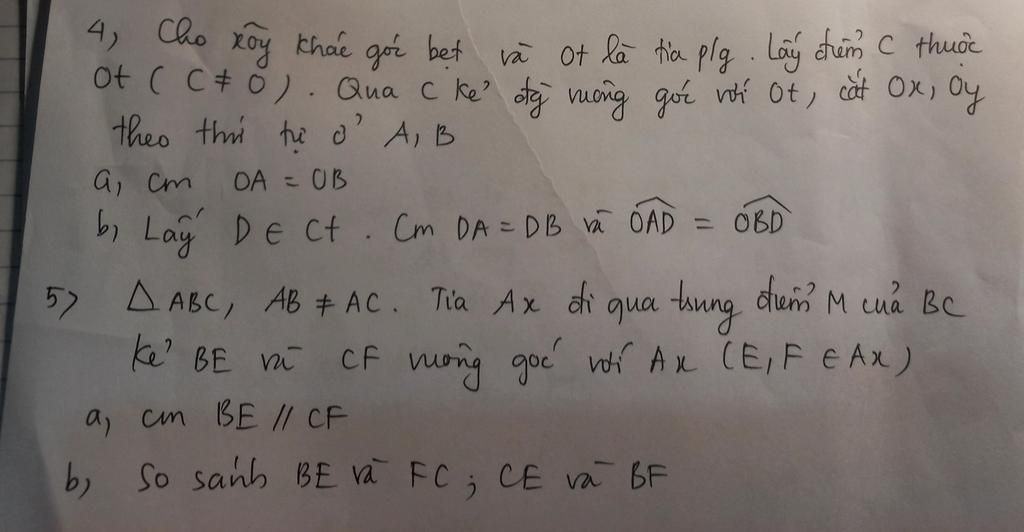 4, Cho xôy khác góc bẹt và Ot là tia p/g. Lấy điểm C thuộc
Ot ( C ≠ O ). Qua C kẻ đg vuông góc với Ot, cắt Ox, Oy
theo thứ tự ở A, B
a, cm OA = OB
b, Lấy D ∈ Ct. Cm DA = DB và \widehat{OAD} = \widehat{OBD}
5> △ABC, AB ≠ AC. Tia Ax đi qua trung điểm M của BC
kẻ BE và CF vuông góc với Ax (E, F ∈ Ax)
a, cm BE // CF
b, So sánh BE và FC ; CE và BF